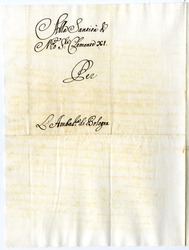 Alla Santità di
N.ro Sig.re Clemente XI.
Per
L'Ambas.re di Bologna